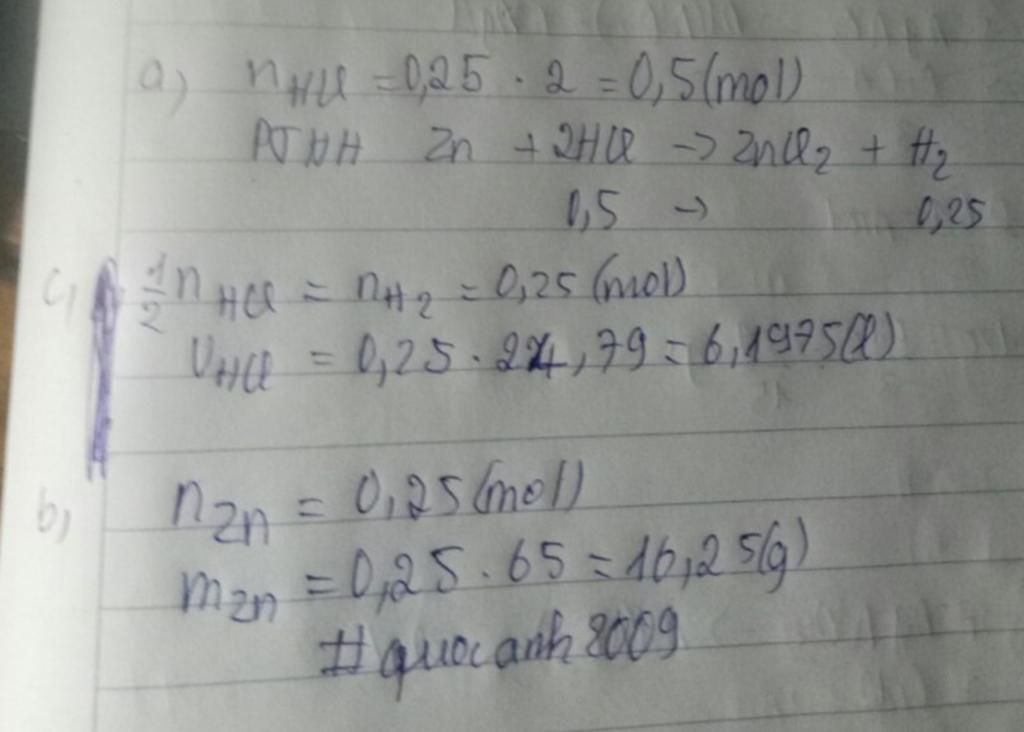 a) nHCl = 0,25 . 2 = 0,5 (mol)
PTHH Zn + 2HCl -> ZnCl2 + H2
0,5 -> 0,25
c, 1/2 nHCl = nH2 = 0,25 (mol)
VHCl = 0,25 . 24,79 = 6,1975 (l)
b, nZn = 0,25 (mol)
mZn = 0,25 . 65 = 16,25 (g)
#quocanh2009